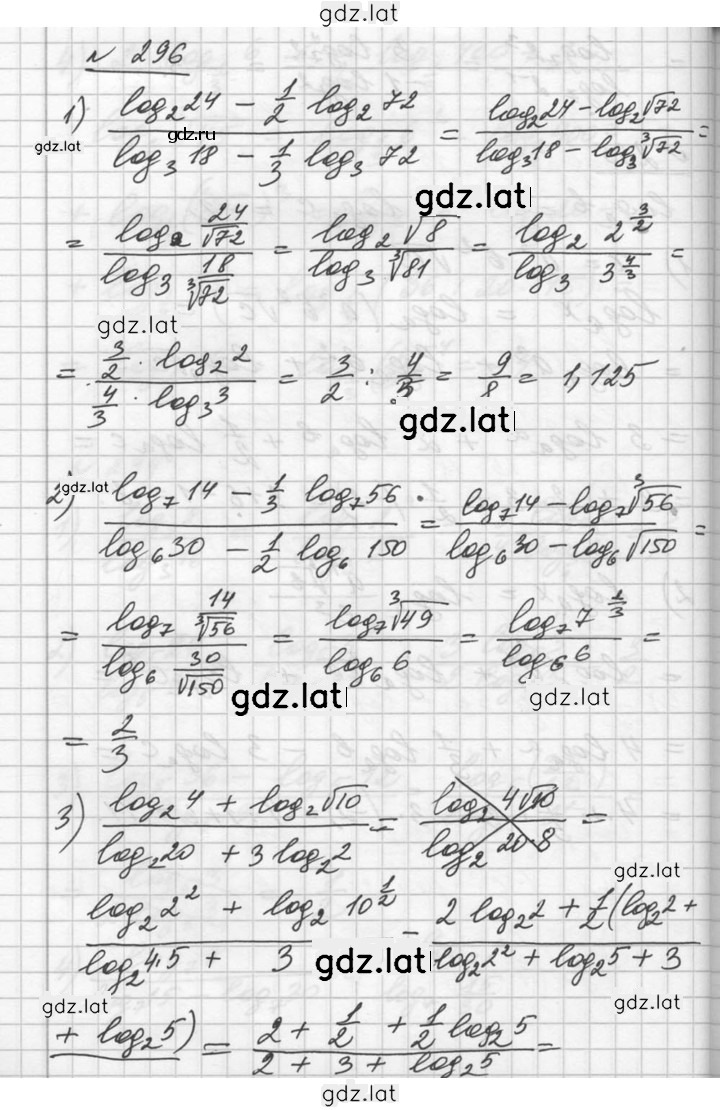 gdz.lat
N 296
1) (log₂24 − 1/2 log₂72) / (log₃18 − 1/3 log₃72) = (log₂24 − log₂√72) / (log₃18 − log₃∛72) =
gdz.ru
gdz.lat
gdz.lat
= (log₂ 24/√72) / (log₃ 18/∛72) = (log₂√8) / (log₃∛81) = (log₂ 2^(3/2)) / (log₃ 3^(4/3)) =
gdz.lat
= (3/2 · log₂2) / (4/3 · log₃3) = 3/2 : 4/3 = 9/8 = 1,125
gdz.lat
2) (log₇14 − 1/3 log₇56) / (log₆30 − 1/2 log₆150) = (log₇14 − log₇∛56) / (log₆30 − log₆√150) =
gdz.lat
= (log₇ 14/∛56) / (log₆ 30/√150) = (log₇∛49) / (log₆6) = (log₇7^(2/3)) / (log₆6) =
gdz.lat
gdz.lat
= 2/3
3) (log₂4 + log₂√10) / (log₂20 + 3 log₂2) = (log₂ 4√10) / (log₂ 20·8) =
gdz.lat
(log₂2² + log₂10^(1/2)) / (log₂4·5 + 3) = (2 log₂2 + 1/2(log₂2 +) / (log₂2² + log₂5 + 3)
gdz.lat
gdz.lat
gdz.lat
+ log₂5) = (2 + 1/2 + 1/2 log₂5) / (2 + 3 + log₂5) =
gdz.lat